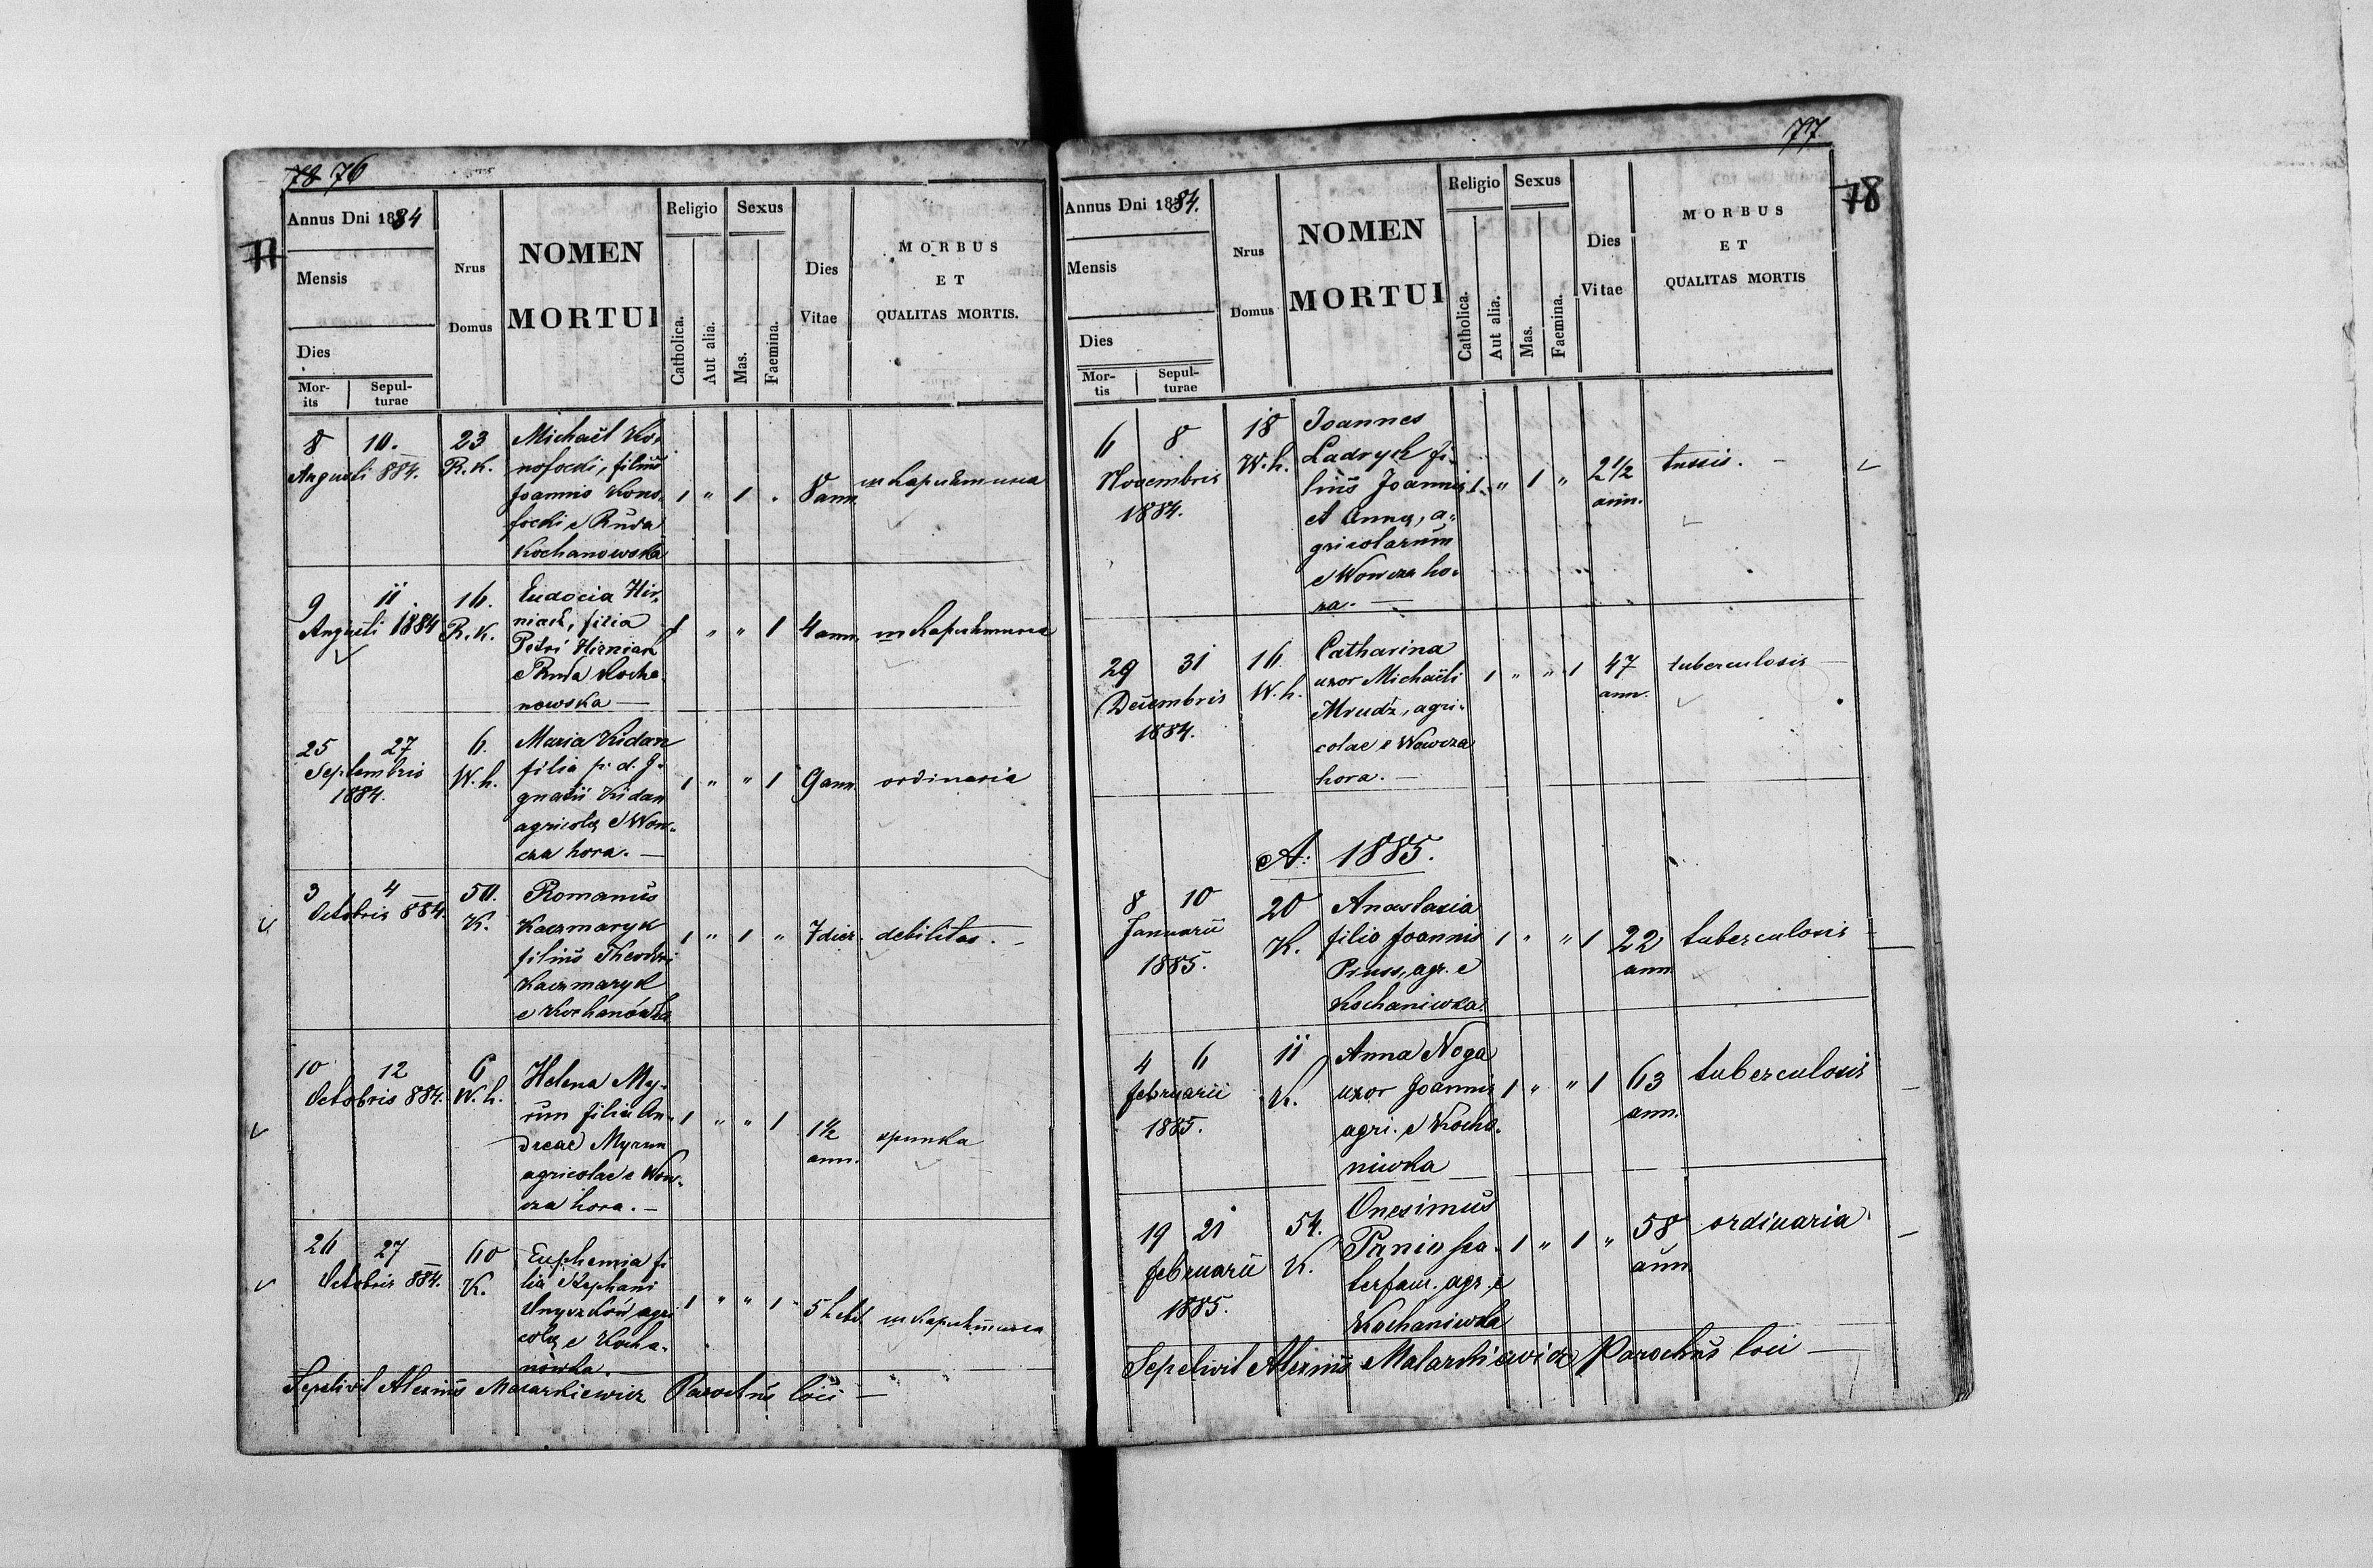 78 76
77
Annus Dni 1884
Mensis
Dies
Mor-
its
Sepul-
turae
Nrus
Domus
NOMEN
MORTUI
Religio
Catholica.
Aut alia.
Sexus
Mas.
Faemina.
Dies
Vitae
MORBUS
ET
QUALITAS MORTIS.
8 10.
Augusti 884.
23
R. K.
Michaël Ko-
nofocki, filius
Joannis Kono-
focki e Ruda
Kochanowska
1 " 1 "
8 ann.
9 11
Augusti 1884
16.
R. K.
Eudocia Hir-
niak, filia
Petri Hirniak
e Ruda Kocha-
nowska —
1 " " 1
4 ann.
25 27
Septembris
1884.
6.
W. h.
Maria Kudan
filia p. d. J-
gnatii Kudan
agricolę e Wow-
cza hora. —
1 " " 1
9 ann.
ordinaria
3 4
Octobris 884.
50.
K.
Romanus
Kaczmaryk
filius Theodori
Kaczmaryk
e Kochanówka
1 " 1 "
7 dier.
debilitas. —
10 12
Octobris 884.
6
W. h.
Helena My-
run filia An-
dreae Myrun
agricolae e Wow-
cza hora. —
1 " " 1
1½
ann.
26 27
Octobris 884.
60
K.
Euphemia fi
lia Stephani
agri
colę e Kocha-
nówka. —
1 " " 1
5 hebd.
Sepelivit Alexius Malarkiewicz Parochus loci —
77
78
Annus Dni 1884.
Mensis
Dies
Mor-
tis
Sepul-
turae
Nrus
Domus
NOMEN
MORTUI
Religio
Catholica.
Aut alia.
Sexus
Mas.
Faemina.
Dies
Vitae
MORBUS
ET
QUALITAS MORTIS
6 8
Novembris
1884.
18
W. h.
Joannes
Ladryk fi-
lius Joannis
et Annę, a-
gricolarum
e Wowcza ho-
ra. —
1 " 1 "
2 1/2
ann.
tussis. —
29 31
Decembris
1884.
16.
W. h.
Catharina
uxor Michaëli
Mrudz, agri-
colae e Wowcza
hora. —
1 " " 1
47
ann.
tuberculosis —
A: 1885.
8 10
Januarii
1885.
20
K.
Anastasia
filia Joannis
Pruss, agr. e
Kochaniwka.
1 " " 1
22
ann.
tuberculosis
4 6
februarii
1885.
11
K.
Anna Noga
uxor Joannis
agri. e Kocha-
niwka
1 " " 1
63
ann.
tuberculosis
19 21
februarii
1885.
54.
K.
Onesimus
Panio pa-
terfam. agr. e
Kochaniwka
1 " 1 "
58
ann
ordinaria.
Sepelivit Alexius Malarkiewicz Parochus loci —